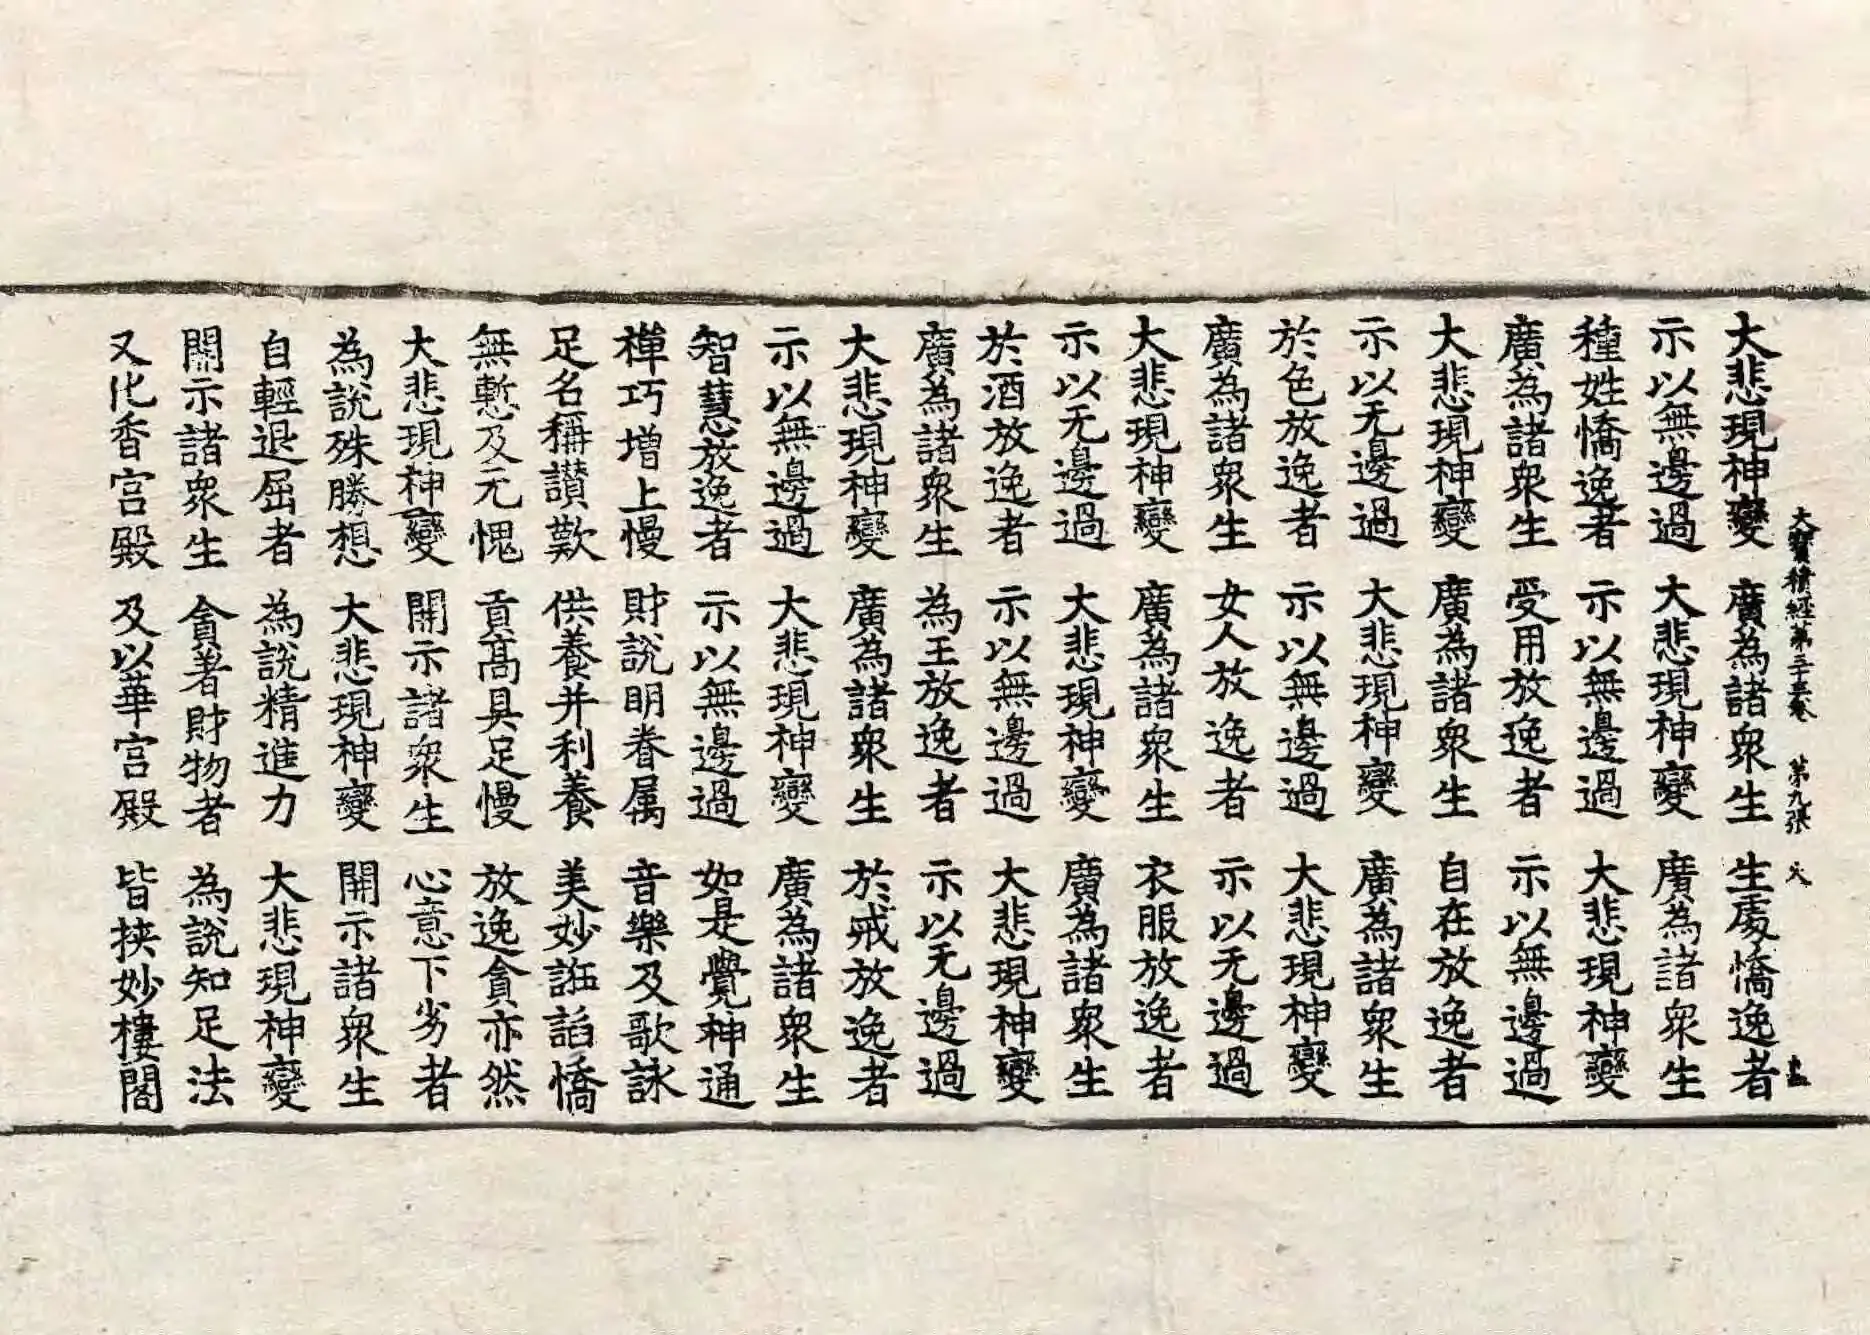 大寶積經第三十三卷 第九張 火
大悲現神變 廣為諸衆生 生處憍逸者
示以無邊過 大悲現神變 廣為諸衆生
種姓憍逸者 示以無邊過 大悲現神變
廣為諸衆生 受用放逸者 示以無邊過
大悲現神變 廣為諸衆生 自在放逸者
示以无邊過 大悲現神變 廣為諸衆生
於色放逸者 示以無邊過 大悲現神變
廣為諸衆生 女人放逸者 示以无邊過
大悲現神變 廣為諸衆生 衣服放逸者
示以无邊過 大悲現神變 廣為諸衆生
於酒放逸者 示以無邊過 大悲現神變
廣為諸衆生 為王放逸者 示以无邊過
大悲現神變 廣為諸衆生 於戒放逸者
示以無邊過 大悲現神變 廣為諸衆生
智慧放逸者 示以無邊過 如是覺神通
禪巧增上慢 財說明眷属 音樂及歌詠
足名稱讃歎 供養并利養 美妙誑諂憍
無慙及无愧 貢高具足慢 放逸貪亦然
大悲現神變 開示諸衆生 心意下劣者
為說殊勝想 大悲現神變 開示諸衆生
自輕退屈者 為說精進力 大悲現神變
開示諸衆生 貪著財物者 為說知足法
又化香宮殿 及以華宮殿 皆挾妙樓閣